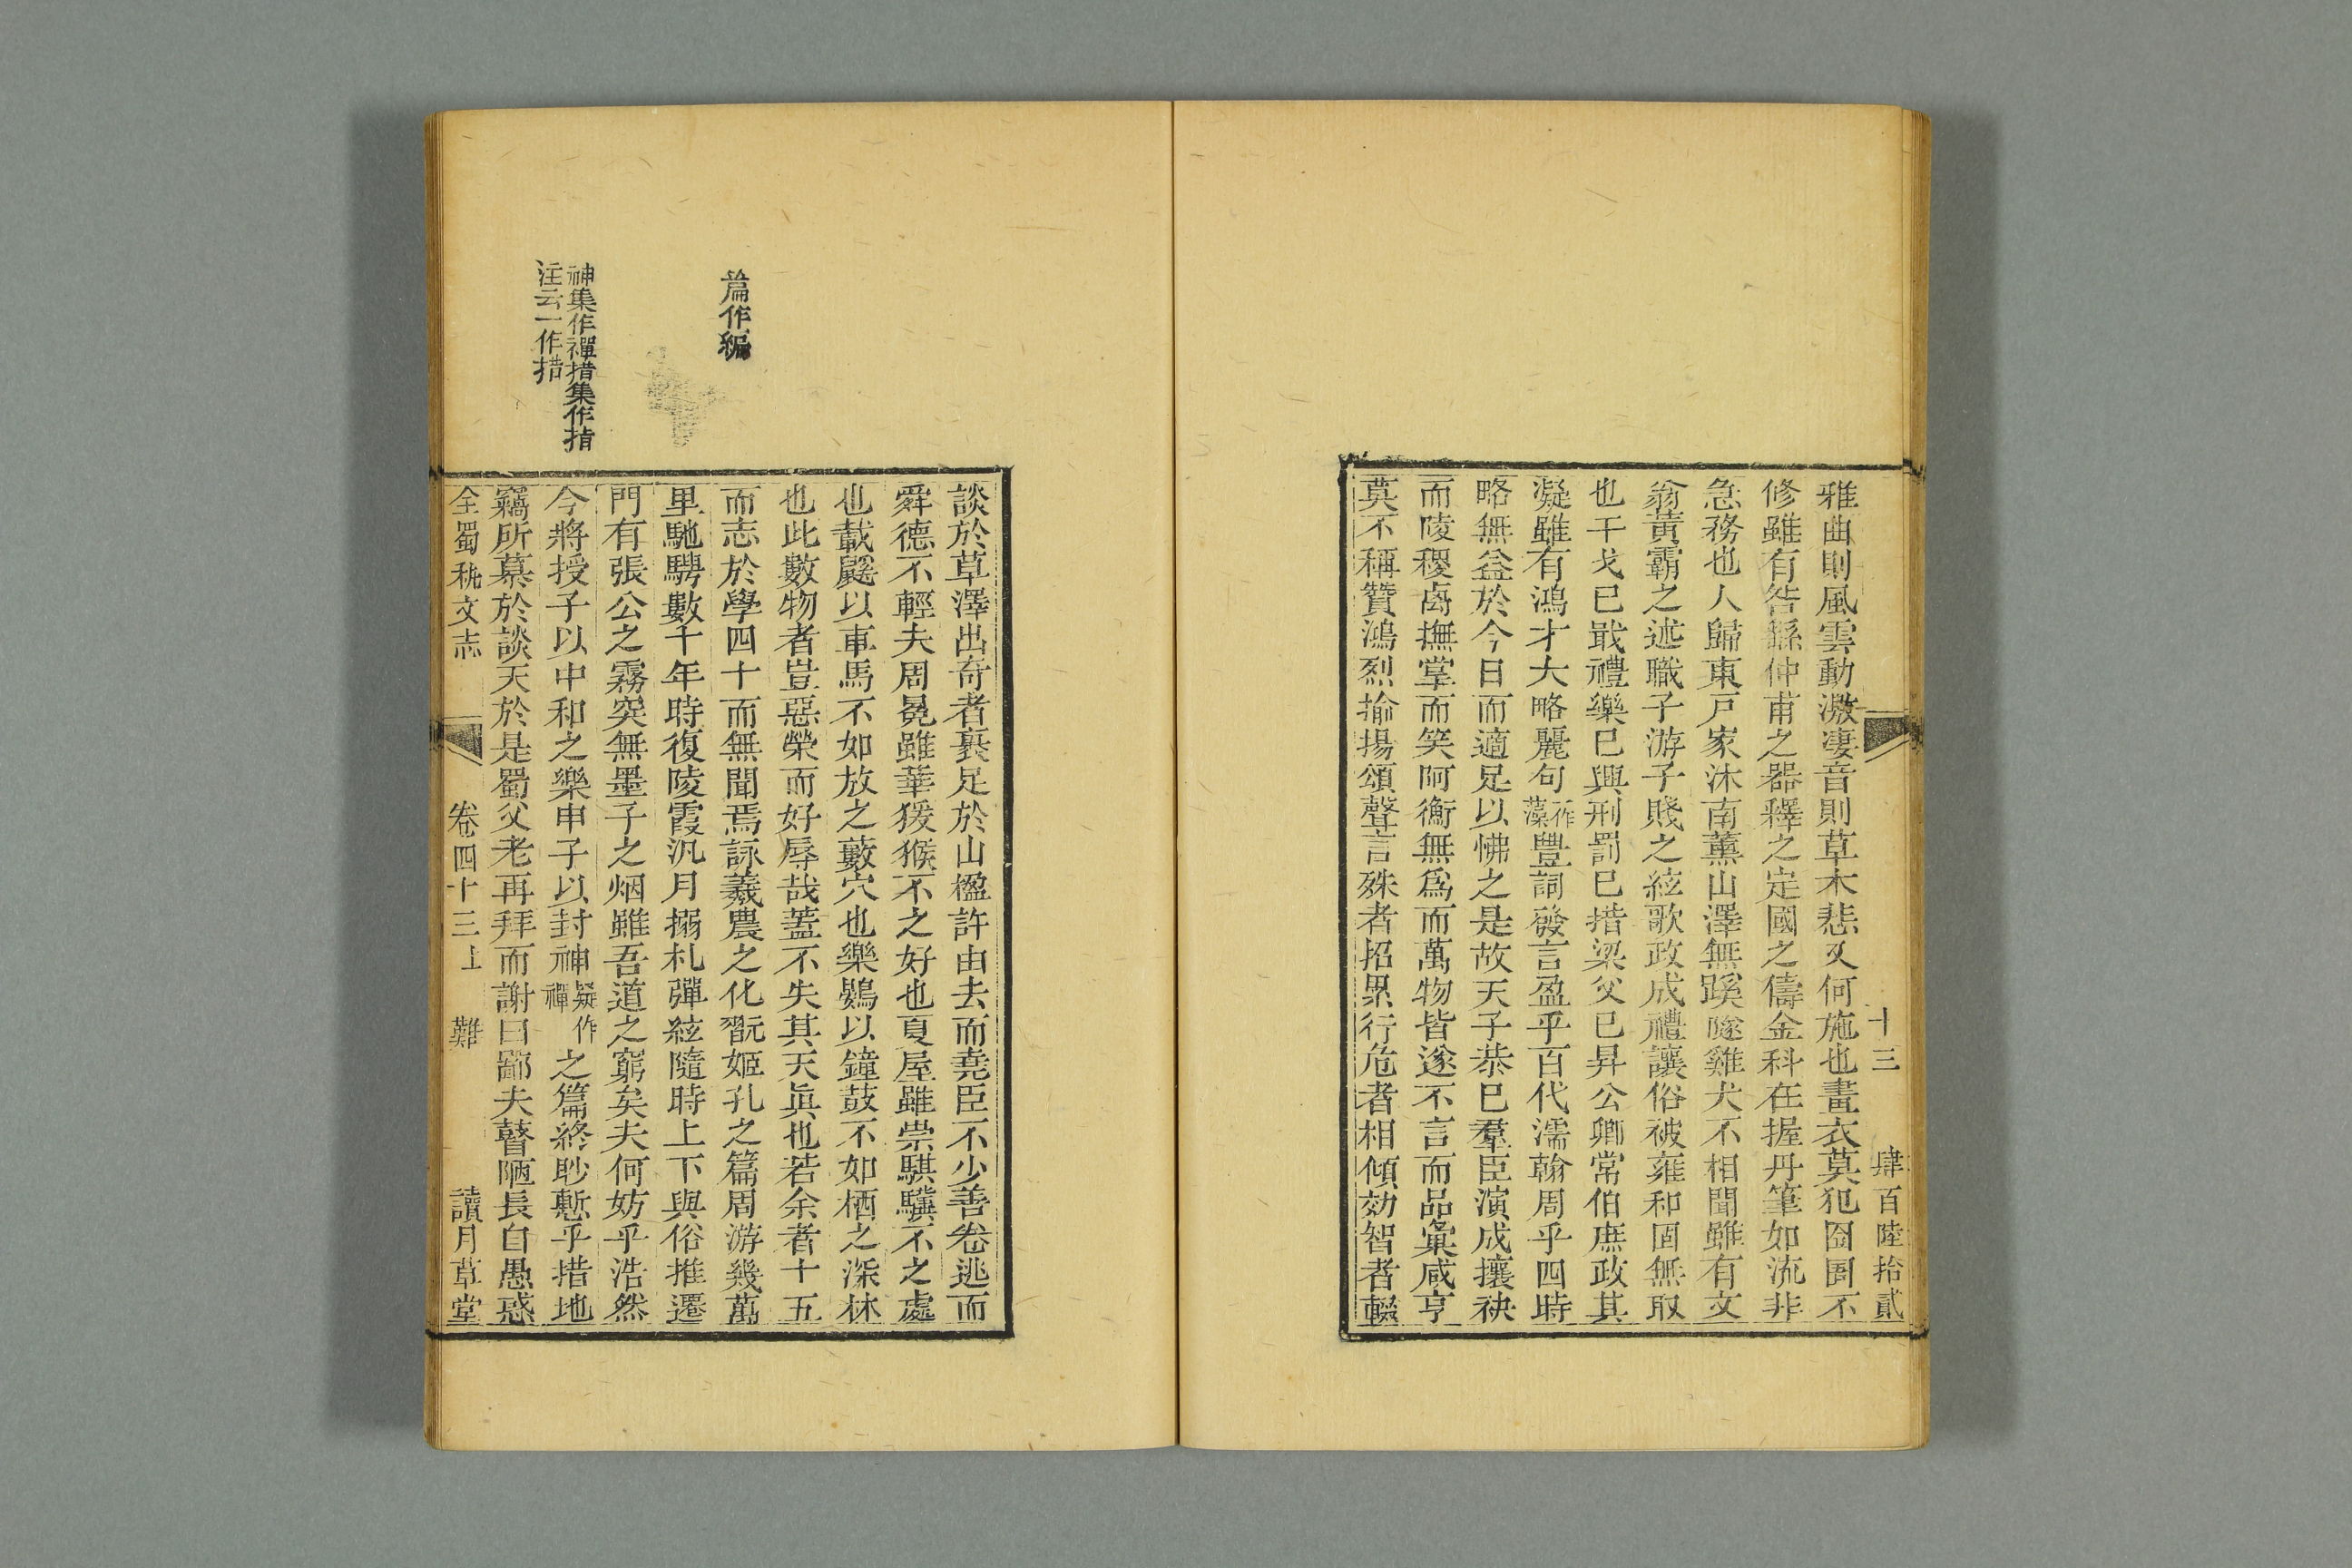 十三　肆百陸拾貳
雅曲則風雲動激淒音則草木悲又何施也畫衣莫犯囹圄不
修雖有咎繇仲甫之器釋之定國之儔金科在握丹筆如流非
急務也人歸東戸家沐南薰山澤無蹊隧雞犬不相聞雖有文
翁黃霸之述職子游子賤之絃歌政成禮讓俗被雍和固無取
也干戈已戢禮樂已興刑罰已措梁父已昇公卿常伯庶政其
凝雖有鴻才大略麗句一作藻豐詞發言盈乎百代濡翰周乎四時
略無益於今日而適足以怫之是故天子恭已羣臣演成攘袂
而陵稷卨撫掌而笑阿衡無爲而萬物皆遂不言而品彙咸亨
莫不稱贊鴻烈揄揚頌聲言殊者招累行危者相傾効智者輟
談於草澤出奇者裹足於山楹許由去而堯臣不少善卷逃而
舜德不輕夫周冕雖華猨猴不之好也夏屋雖崇騏驥不之處
也載鼷以車馬不如放之藪穴也樂鷃以鐘鼓不如栖之深林
也此數物者豈惡榮而好辱哉蓋不失其天眞也若余者十五
而志於學四十而無聞焉詠羲農之化翫姬孔之篇周游幾萬
里馳騁數千年時復陵霞汎月搦札彈絃隨時上下與俗推遷
門有張公之霧突無墨子之烟雖吾道之窮矣夫何妨乎浩然
今將授子以中和之樂申子以封神疑作禪之篇終眇慙乎措地
竊所慕於談天於是蜀父老再拜而謝曰鄙夫瞽陋長自愚惑
全蜀秇文志　卷四十三上　難　讀月草堂
篇作編
神集作禪措集作揹
注云一作措